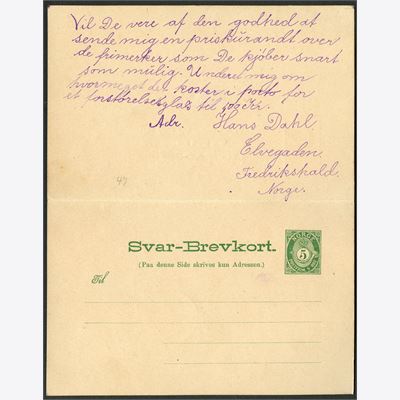 Vil De vere af den godhed at
sende mig en priskurandt over
de frimerker som De kjøber snart
som mulig. Underet mig om
hvormeget det koster i porto for
et forstørelsesglas til
Adr. Hans Dahl.
Elvegaden.
Fredrikshald.
Norge.
47
Svar-Brevkort.
(Paa denne Side skrives kun Adressen.)
NORGE
5
Til